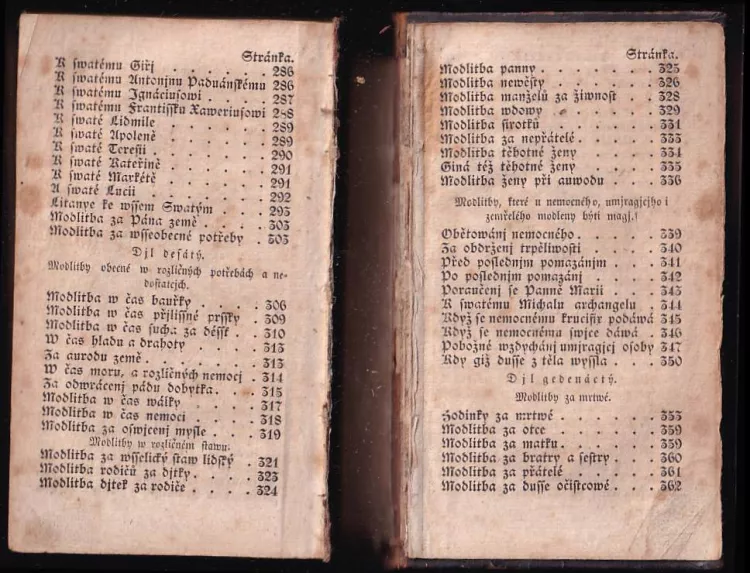 Stránka.
K swatému Giřj . . . . . . 286
K swatému Antonjnu Paduánskému 286
K swatému Ignáciusowi . . . . 287
K swatému Frantissku Xaweriusowi 288
K swaté Lidmile . . . . . . 289
K swaté Apoleně . . . . . . 289
K swaté Teresii . . . . . . 290
K swaté Kateřině . . . . . . 291
K swaté Markétě . . . . . . 291
K swaté Lucii . . . . . . 292
Litanye ke wssem Swatým . . . 293
Modlitba za Pána země . . . . 303
Modlitba za wsseobecné potřeby . 303
Djl desátý.
Modlitby obecné w rozličných potřebách a ne-
dostatcjch.
Modlitba w čas bauřky . . . . 306
Modlitba w čas přjlissné prssky . 309
Modlitba w čas sucha za déssť . . 310
W čas hladu a drahoty . . . . 313
Za aurodu země . . . . . . 313
W čas moru, a rozličných nemocj . 314
Za odwrácenj pádu dobytka . . . 315
Modlitba w čas wálky . . . . 317
Modlitba w čas nemoci . . . . 318
Modlitba za oswjcenj mysle . . . 319
Modlitby w rozličném stawu.
Modlitba za wsselický staw lidský . 321
Modlitba rodičů za djtky . . . . 323
Modlitba djtek za rodiče . . . . 324
Stránka.
Modlitba panny . . . . . . 325
Modlitba newěsty . . . . . . 326
Modlitba manželů za žiwnost . . 328
Modlitba wdowy . . . . . . 329
Modlitba sirotků . . . . . . 331
Modlitba za nepřátelé . . . . . 333
Modlitba těhotné ženy . . . . 334
Giná též těhotné ženy . . . . 335
Modlitba ženy při auwodu . . . 336
Modlitby, které u nemocného, umjragjcjho i
zemřelého modleny býti magj.
Obětowánj nemocného . . . . . 339
Za obdrženj trpěliwosti . . . . 340
Před poslednjm pomazánjm . . . 341
Po poslednjm pomazánj . . . . 342
Poručenj se Panně Marii . . . . 343
K swatému Michalu archangelu . . 344
Když se nemocnému krucifix podáwá 345
Když se nemocnému swjce dáwá . 346
Pobožné wzdychánj umjragjcj osoby 347
Kdy giž dusse z těla wyssla . . . 350
Djl gedenáctý.
Modlitby za mrtwé.
Hodinky za mrtwé . . . . . . 353
Modlitba za otce . . . . . . 359
Modlitba za matku . . . . . . 359
Modlitba za bratry a sestry . . . 360
Modlitba za přátelé . . . . . 361
Modlitba za dusse očistcowé . . . 362